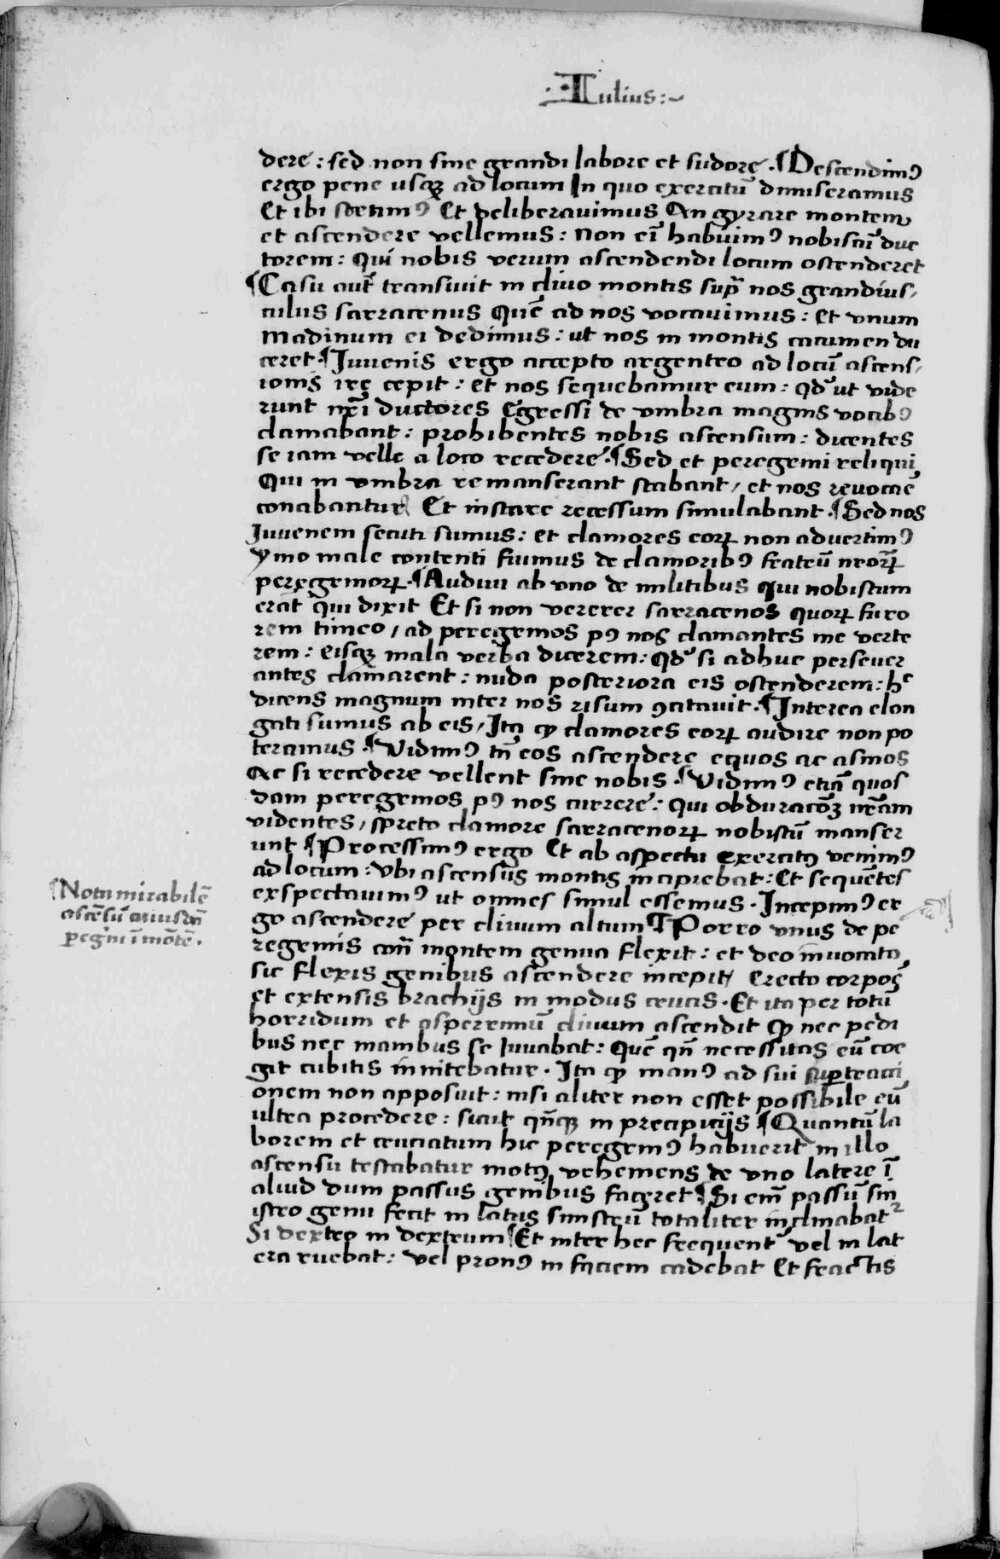 ·:Iulius:~
dere: sed non sine grandi labore et sudore. ¶Descendimꝰ
ergo pene usqꝫ ad locum In quo exercitū dimiseramus
Et ibi stetimꝰ Et deliberavimus An gyrare montem
et ascendere vellemus: Non eī habuimꝰ nobiscū duc
torem: Qui nobis verum ascendendi locum ostenderet
¶Casu aut̄ transivit in clivo montis sup̄ nos grandius,
culus sarracenus Quē ad nos vocavimus: et vnum
Madinum ei dedimus: ut nos in montis cacumen du
ceret ¶Juvenis ergo accepto argenteo ad locū ascens,
ionis ire cepit: et nos sequebamur eum: qd̄ ut vide
runt nr̄i ductores Egressi de vmbra magnis vocibꝰ
clamabant: prohibentes nobis ascensum: dicentes
se iam velle a loco recedere. ¶Sed et peregrini reliqui
Qui in vmbra remanserant stabant, et nos revocare
conabantur Et instare recessum simulabant. ¶Sed nos
Juvenem secuti sumus: et clamores eorꝝ non advertimꝰ
ymo male contenti fuimus de clamoribꝰ fratrū nr̄orꝝ
peregrinorꝝ. ¶Audivi ab vno de militibus Qui nobiscum
erat qui dixit Et si non vererer sarracenos quorꝝ furo
rem timeo, ad peregrinos pꝰ nos clamantes me verte
rem: eisqꝫ mala verba dicerem: qd̄ si adhuc persever
antes clamarent: nuda posteriora eis ostenderem: hᶜ
dicens magnum inter nos risum ꝯcitavit. ¶Interea elon
gati sumus ab eis, Ita ꝙ clamores eorꝝ audire non po
teramus. ¶Vidimꝰ tn̄ eos ascendere equos ac asinos
Ac si recedere vellent sine nobis. ¶Vidimꝰ etiā quos
dam peregrinos pꝰ nos currere: qui obduracōꝫ nr̄am
videntes, spreto clamore sarracenorꝝ nobiscū manser
unt ¶Processimꝰ ergo Et ab aspectu exercitꝰ venimꝰ
ad locum: Vbi ascensus montis incipiebat: Et sequētes
exspectavimꝰ ut omnes simul essemus. Incepimꝰ er
go ascendere per clivum altum ¶Porro vnus de pe
regrinis con̄ montem genua flexit: et deo invocato,
sic flexis genibus ascendere incepit, Erecto corpore
et extensis brachijs in modus crucis. Et ita per totū
horridum et asperrimū clivum ascendit ꝙ nec pedi
bus nec manibus se Iuvabat: Quē qn̄ necessitas eū coe
git cubitis innitebatur. Ita ꝙ manꝰ ad sui supertracti
onem non apposuit: nisi aliter non esset possibile eū
ultra procedere: sicut qn̄qꝫ in precipicijs ¶Quantū la
borem et cruciatum hic peregrinꝰ habuerit in illo
ascensu testabatur motꝰ vehemens de vno latere ī
aliud dum passus genibus faceret ¶Si em̄ passū sin
istro genu fecit in latus sinistrū totaliter inclinabatᷣ
Si dextro in dextrum ¶Et inter hec frequent̄ vel in lat
era ruebat: vel pronꝰ in faciem cadebat Et fractis
¶Nota mirabilē
ascēsū cuiusdā
ꝑegrini ī mōtē.